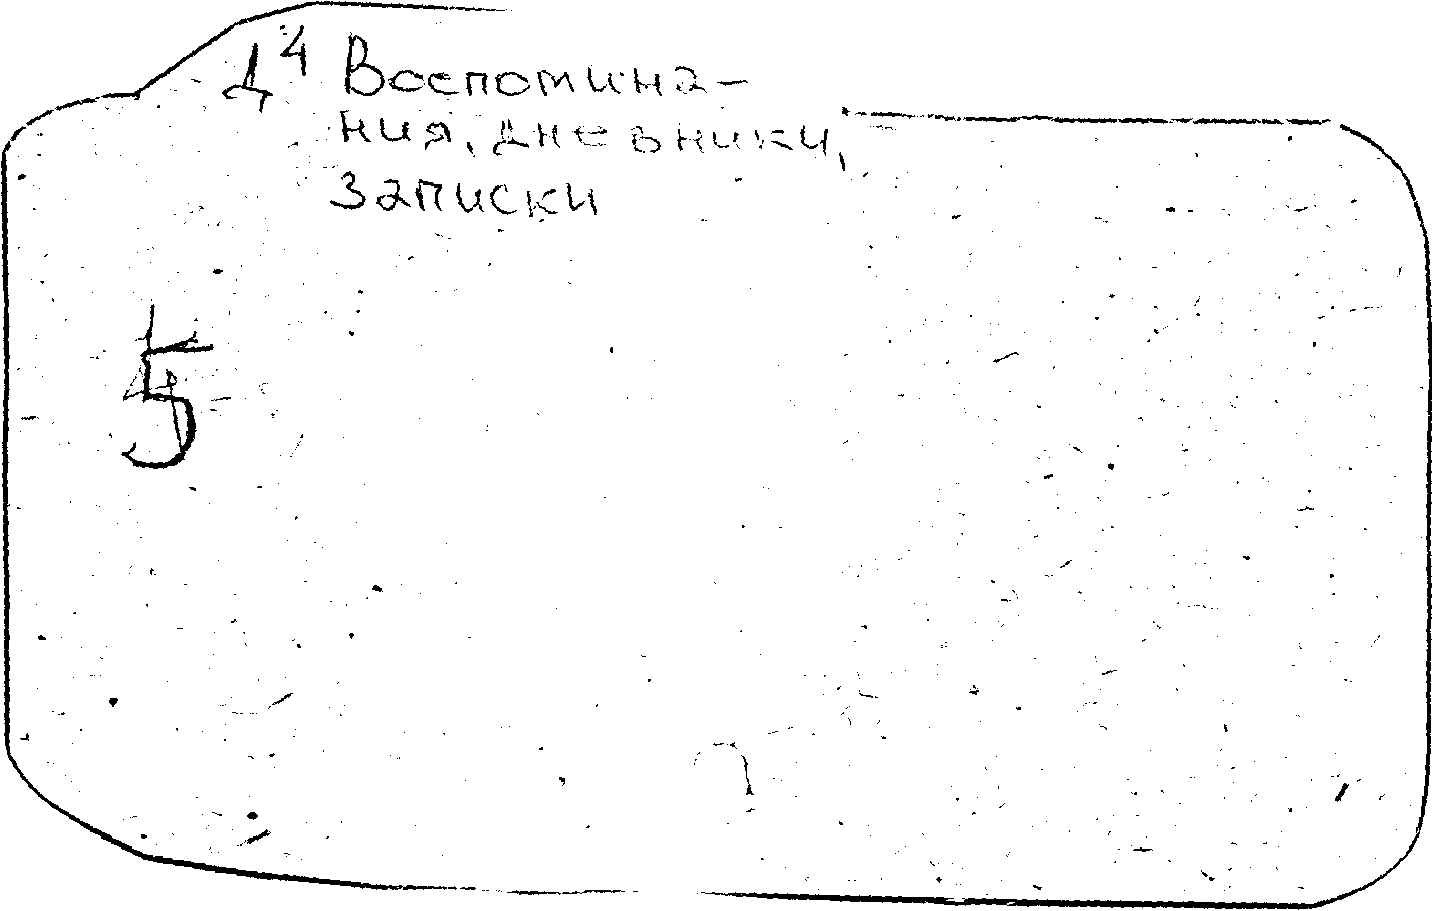 Д4 Воспомина-
ния, дневники,
записки
5